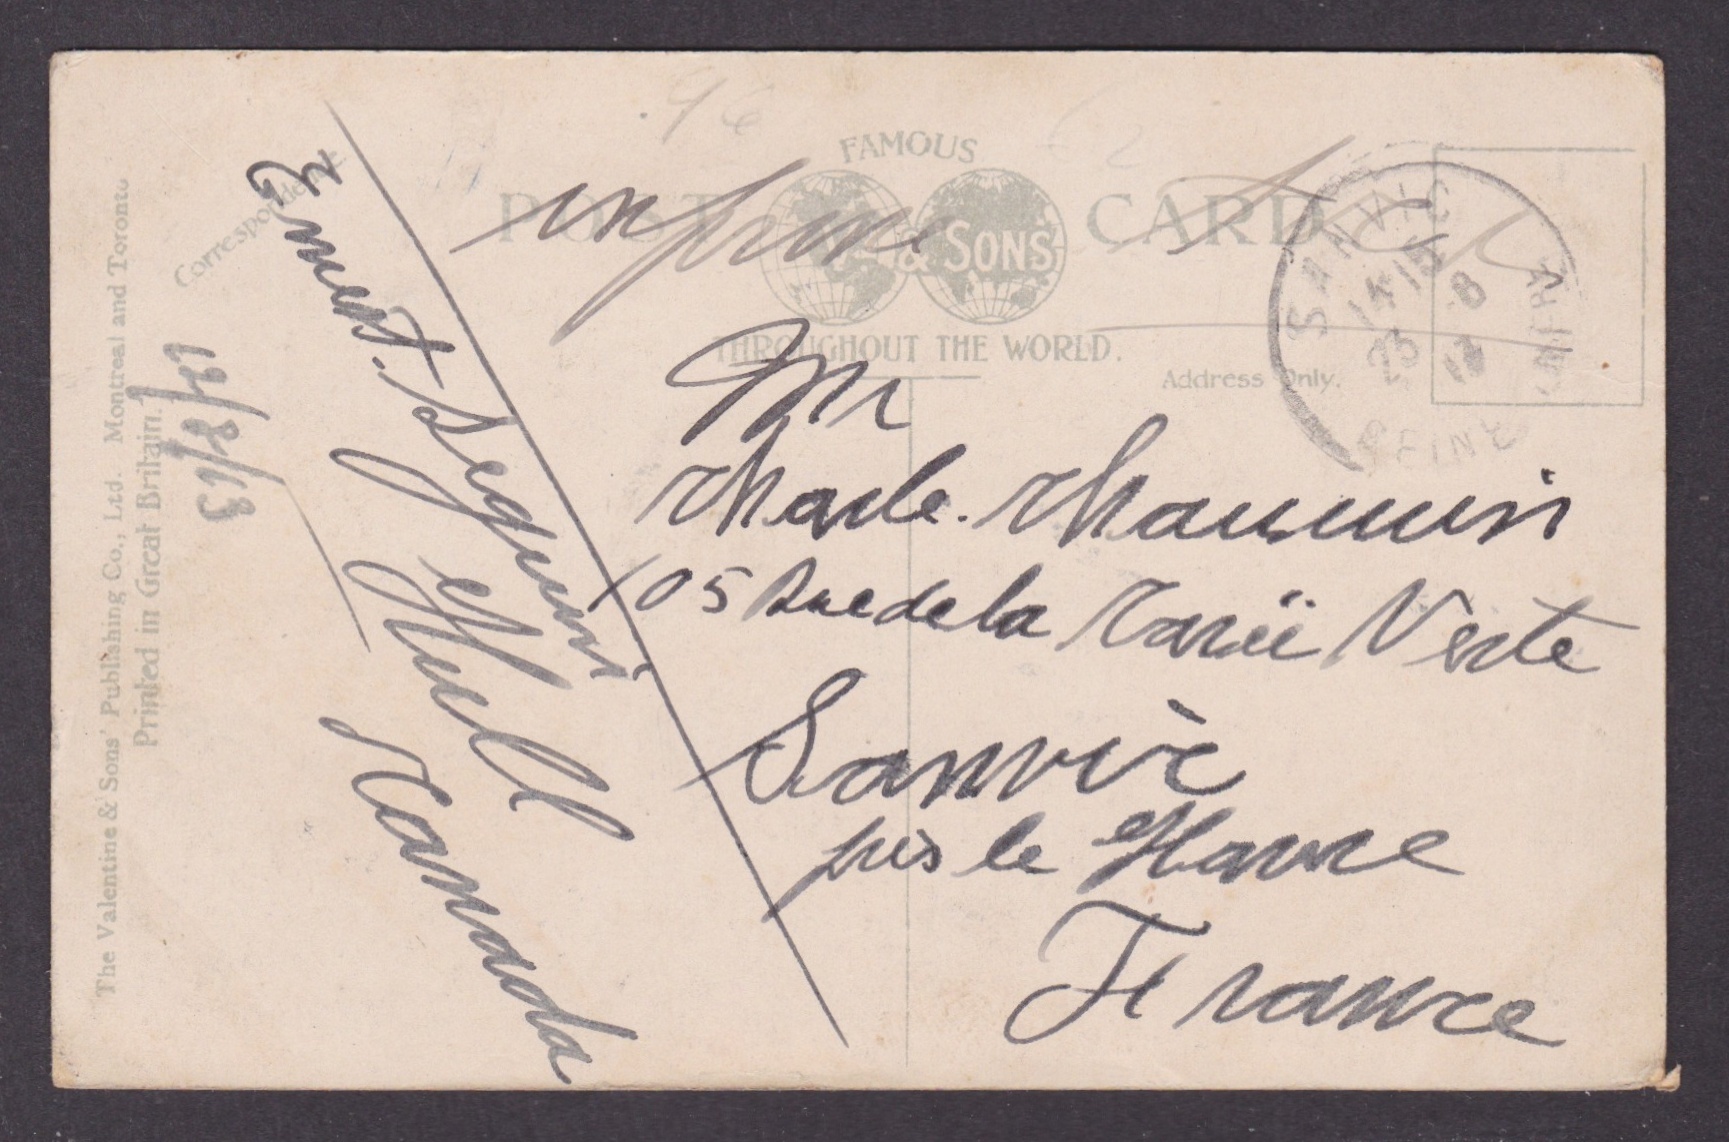 FAMOUS
POST CARD
& SONS
THROUGHOUT THE WORLD.
Address Only.
Correspondence
The Valentine & Sons' Publishing Co., Ltd. Montreal and Toronto
Printed in Great Britain.
SANVIC
14 15
23 - 8
13
SEINE INFRE
12/8/13
Ernest. Seguin
Hull
Canada
Mr
Charle. Chaumin
105 Rue de la Verte
Sanvic
près le Havre
France